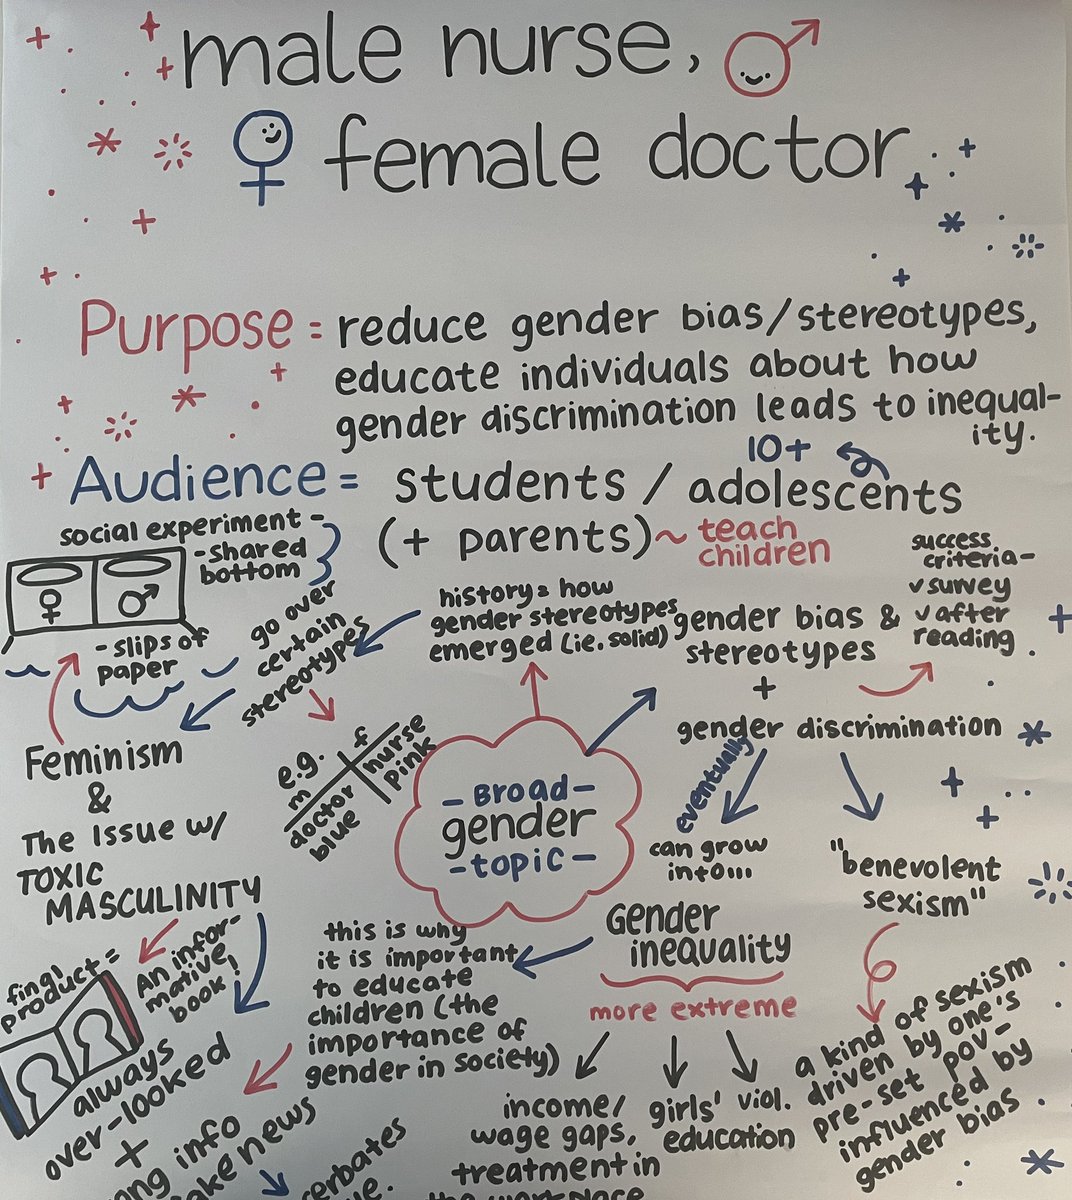 male nurse,
female doctor
Purpose = reduce gender bias/stereotypes,
educate individuals about how
gender discrimination leads to inequal-
ity.
10+
Audience = students / adolescents
(+ parents) ~ teach
children
social experiment -
- shared
bottom
- slips of
paper
go over
certain
stereotypes
history = how
gender stereotypes
emerged (ie. solid)
gender bias &
stereotypes
+
gender discrimination
success
criteria-
✓ survey
✓ after
reading
e.g.
m f
doctor nurse
blue pink
- BROAD -
gender
- topic -
Feminism
&
The Issue w/
TOXIC
MASCULINITY
eventually
can grow
into...
"benevolent
sexism"
Gender
inequality
more extreme
this is why
it is important
to educate
children (the
importance of
gender in society)
final
product =
An infor-
mative
book!
always
over-looked
+
info
news
income/
wage gaps,
treatment in
girls'
education
viol.
a kind of sexism
driven by one's
pre-set pov-
influenced by
gender bias